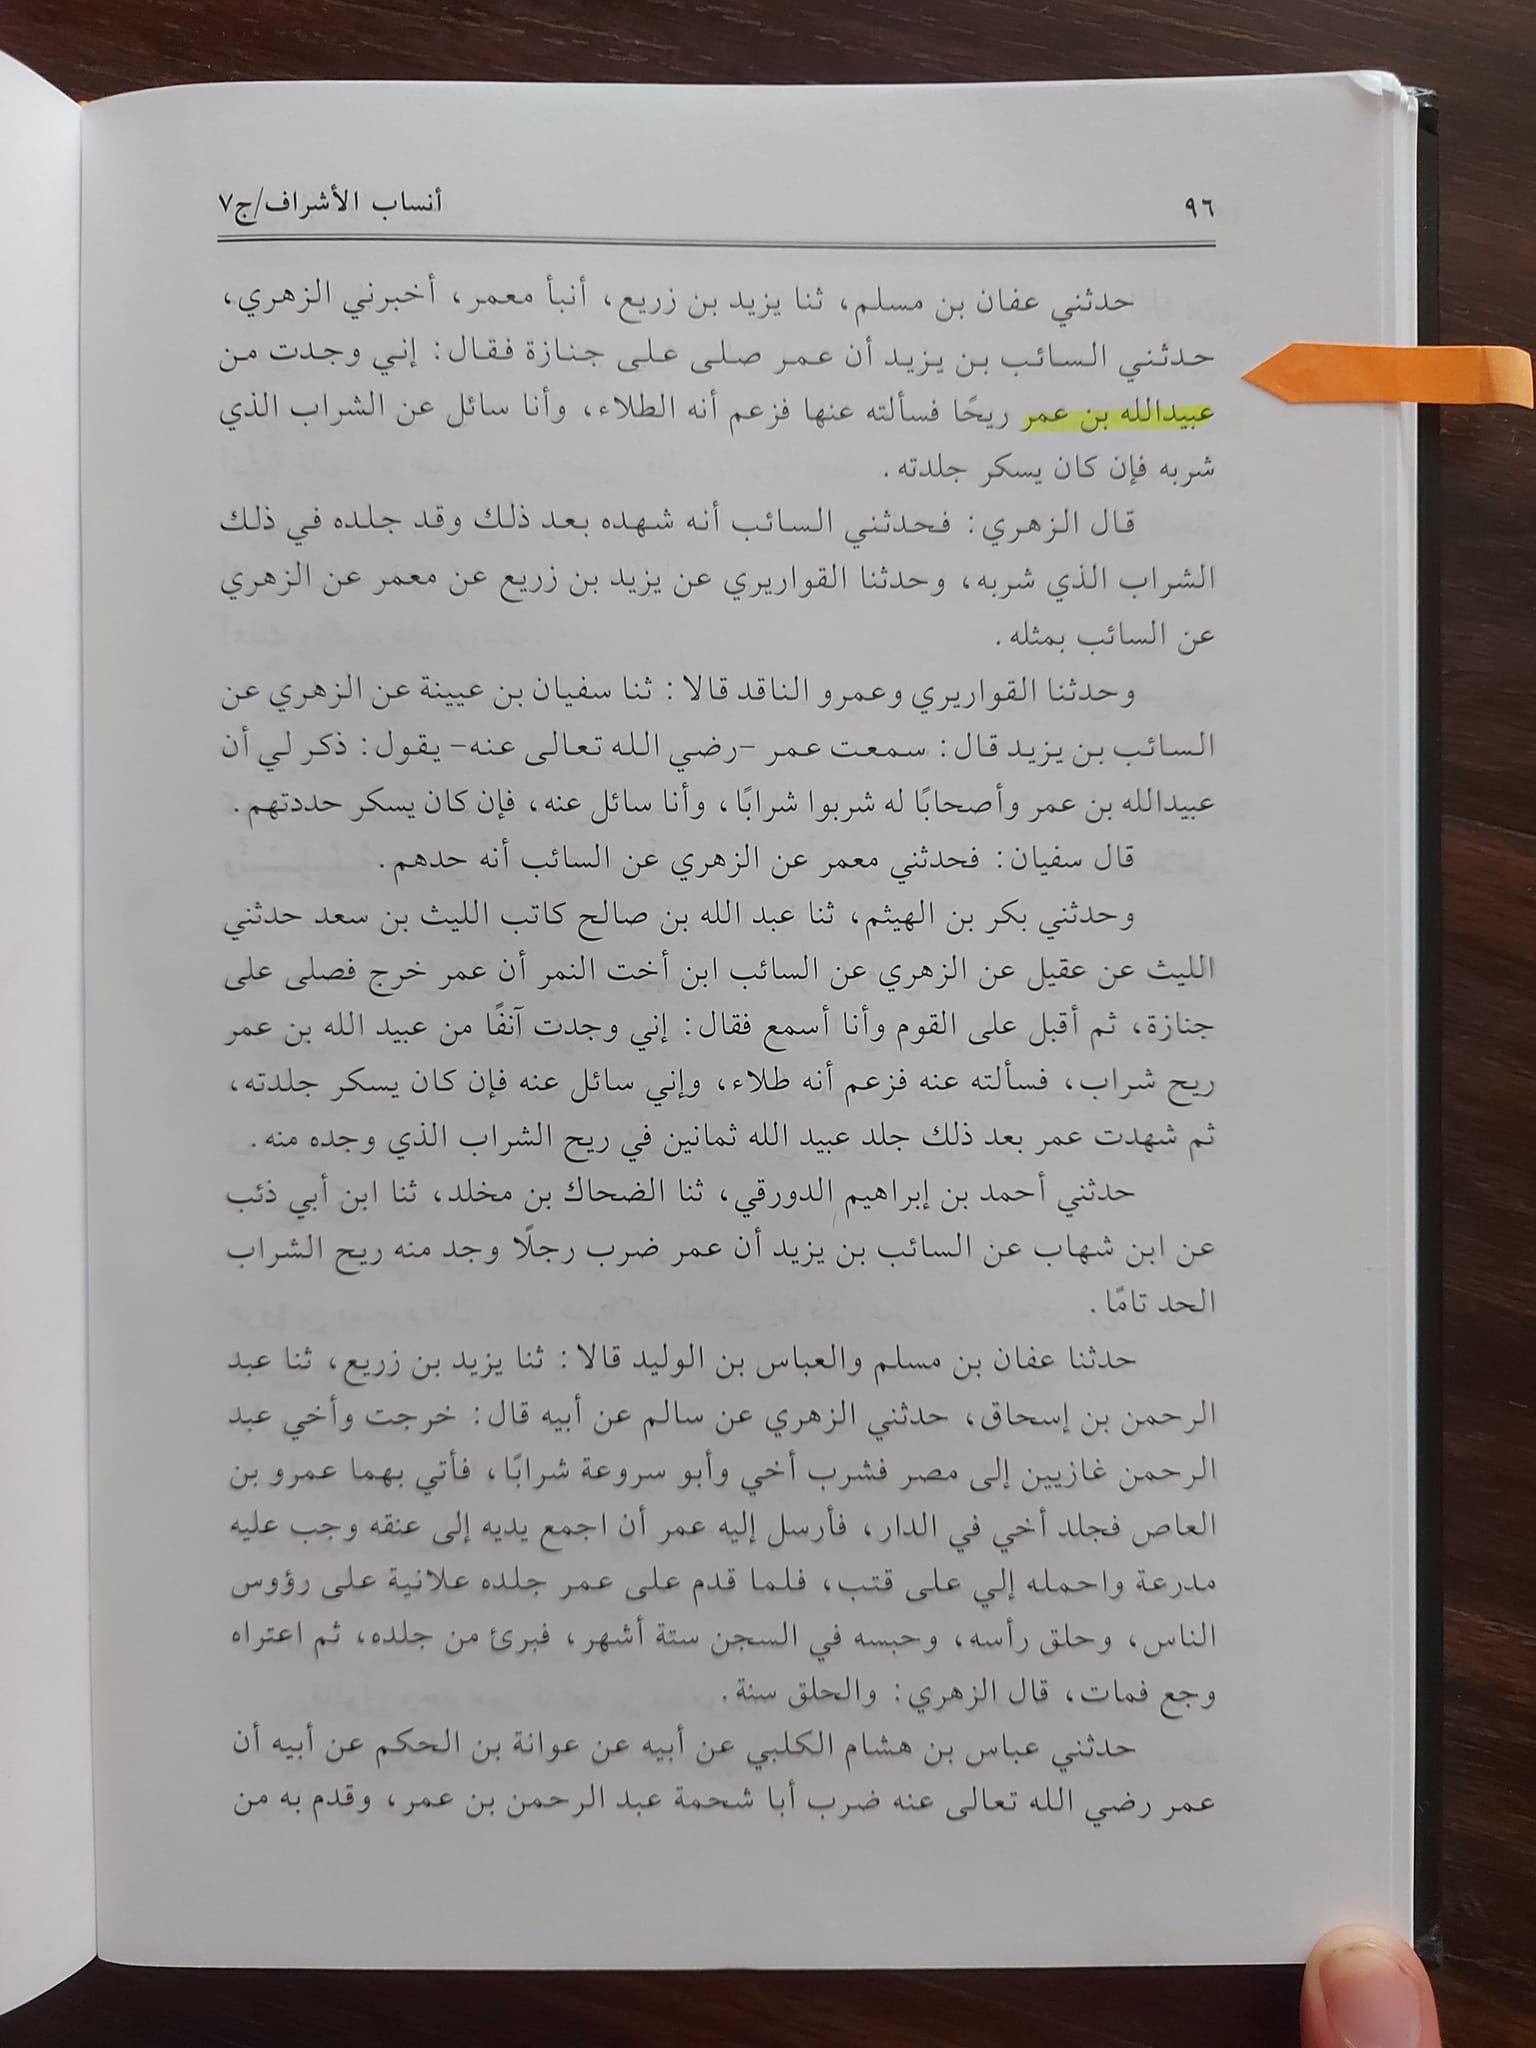 ٩٦
أنساب الأشراف/ج٧
حدثني عفان بن مسلم، ثنا يزيد بن زريع، أنبأ معمر، أخبرني الزهري،
حدثني السائب بن يزيد أن عمر صلى على جنازة فقال: إني وجدت من
عبيدالله بن عمر ريحًا فسألته عنها فزعم أنه الطلاء، وأنا سائل عن الشراب الذي
شربه فإن كان يسكر جلدته.
قال الزهري: فحدثني السائب أنه شهده بعد ذلك وقد جلده في ذلك
الشراب الذي شربه، وحدثنا القواريري عن يزيد بن زريع عن معمر عن الزهري
عن السائب بمثله.
وحدثنا القواريري وعمرو الناقد قالا: ثنا سفيان بن عيينة عن الزهري عن
السائب بن يزيد قال: سمعت عمر -رضي الله تعالى عنه- يقول: ذكر لي أن
عبيدالله بن عمر وأصحابًا له شربوا شرابًا، وأنا سائل عنه، فإن كان يسكر حددتهم.
قال سفيان: فحدثني معمر عن الزهري عن السائب أنه حدهم.
وحدثني بكر بن الهيثم، ثنا عبد الله بن صالح كاتب الليث بن سعد حدثني
الليث عن عقيل عن الزهري عن السائب ابن أخت النمر أن عمر خرج فصلى على
جنازة، ثم أقبل على القوم وأنا أسمع فقال: إني وجدت آنفًا من عبيد الله بن عمر
ريح شراب، فسألته عنه فزعم أنه طلاء، وإني سائل عنه فإن كان يسكر جلدته،
ثم شهدت عمر بعد ذلك جلد عبيد الله ثمانين في ريح الشراب الذي وجده منه.
حدثني أحمد بن إبراهيم الدورقي، ثنا الضحاك بن مخلد، ثنا ابن أبي ذئب
عن ابن شهاب عن السائب بن يزيد أن عمر ضرب رجلًا وجد منه ريح الشراب
الحد تامًا.
حدثنا عفان بن مسلم والعباس بن الوليد قالا: ثنا يزيد بن زريع، ثنا عبد
الرحمن بن إسحاق، حدثني الزهري عن سالم عن أبيه قال: خرجت وأخي عبد
الرحمن غازيين إلى مصر فشرب أخي وأبو سروعة شرابًا، فأتي بهما عمرو بن
العاص فجلد أخي في الدار، فأرسل إليه عمر أن اجمع يديه إلى عنقه وجب عليه
مدرعة واحمله إلي على قتب، فلما قدم على عمر جلده علانية على رؤوس
الناس، وحلق رأسه، وحبسه في السجن ستة أشهر، فبرئ من جلده، ثم اعتراه
وجع فمات، قال الزهري: والحلق سنة.
حدثني عباس بن هشام الكلبي عن أبيه عن عوانة بن الحكم عن أبيه أن
عمر رضي الله تعالى عنه ضرب أبا شحمة عبد الرحمن بن عمر، وقدم به من